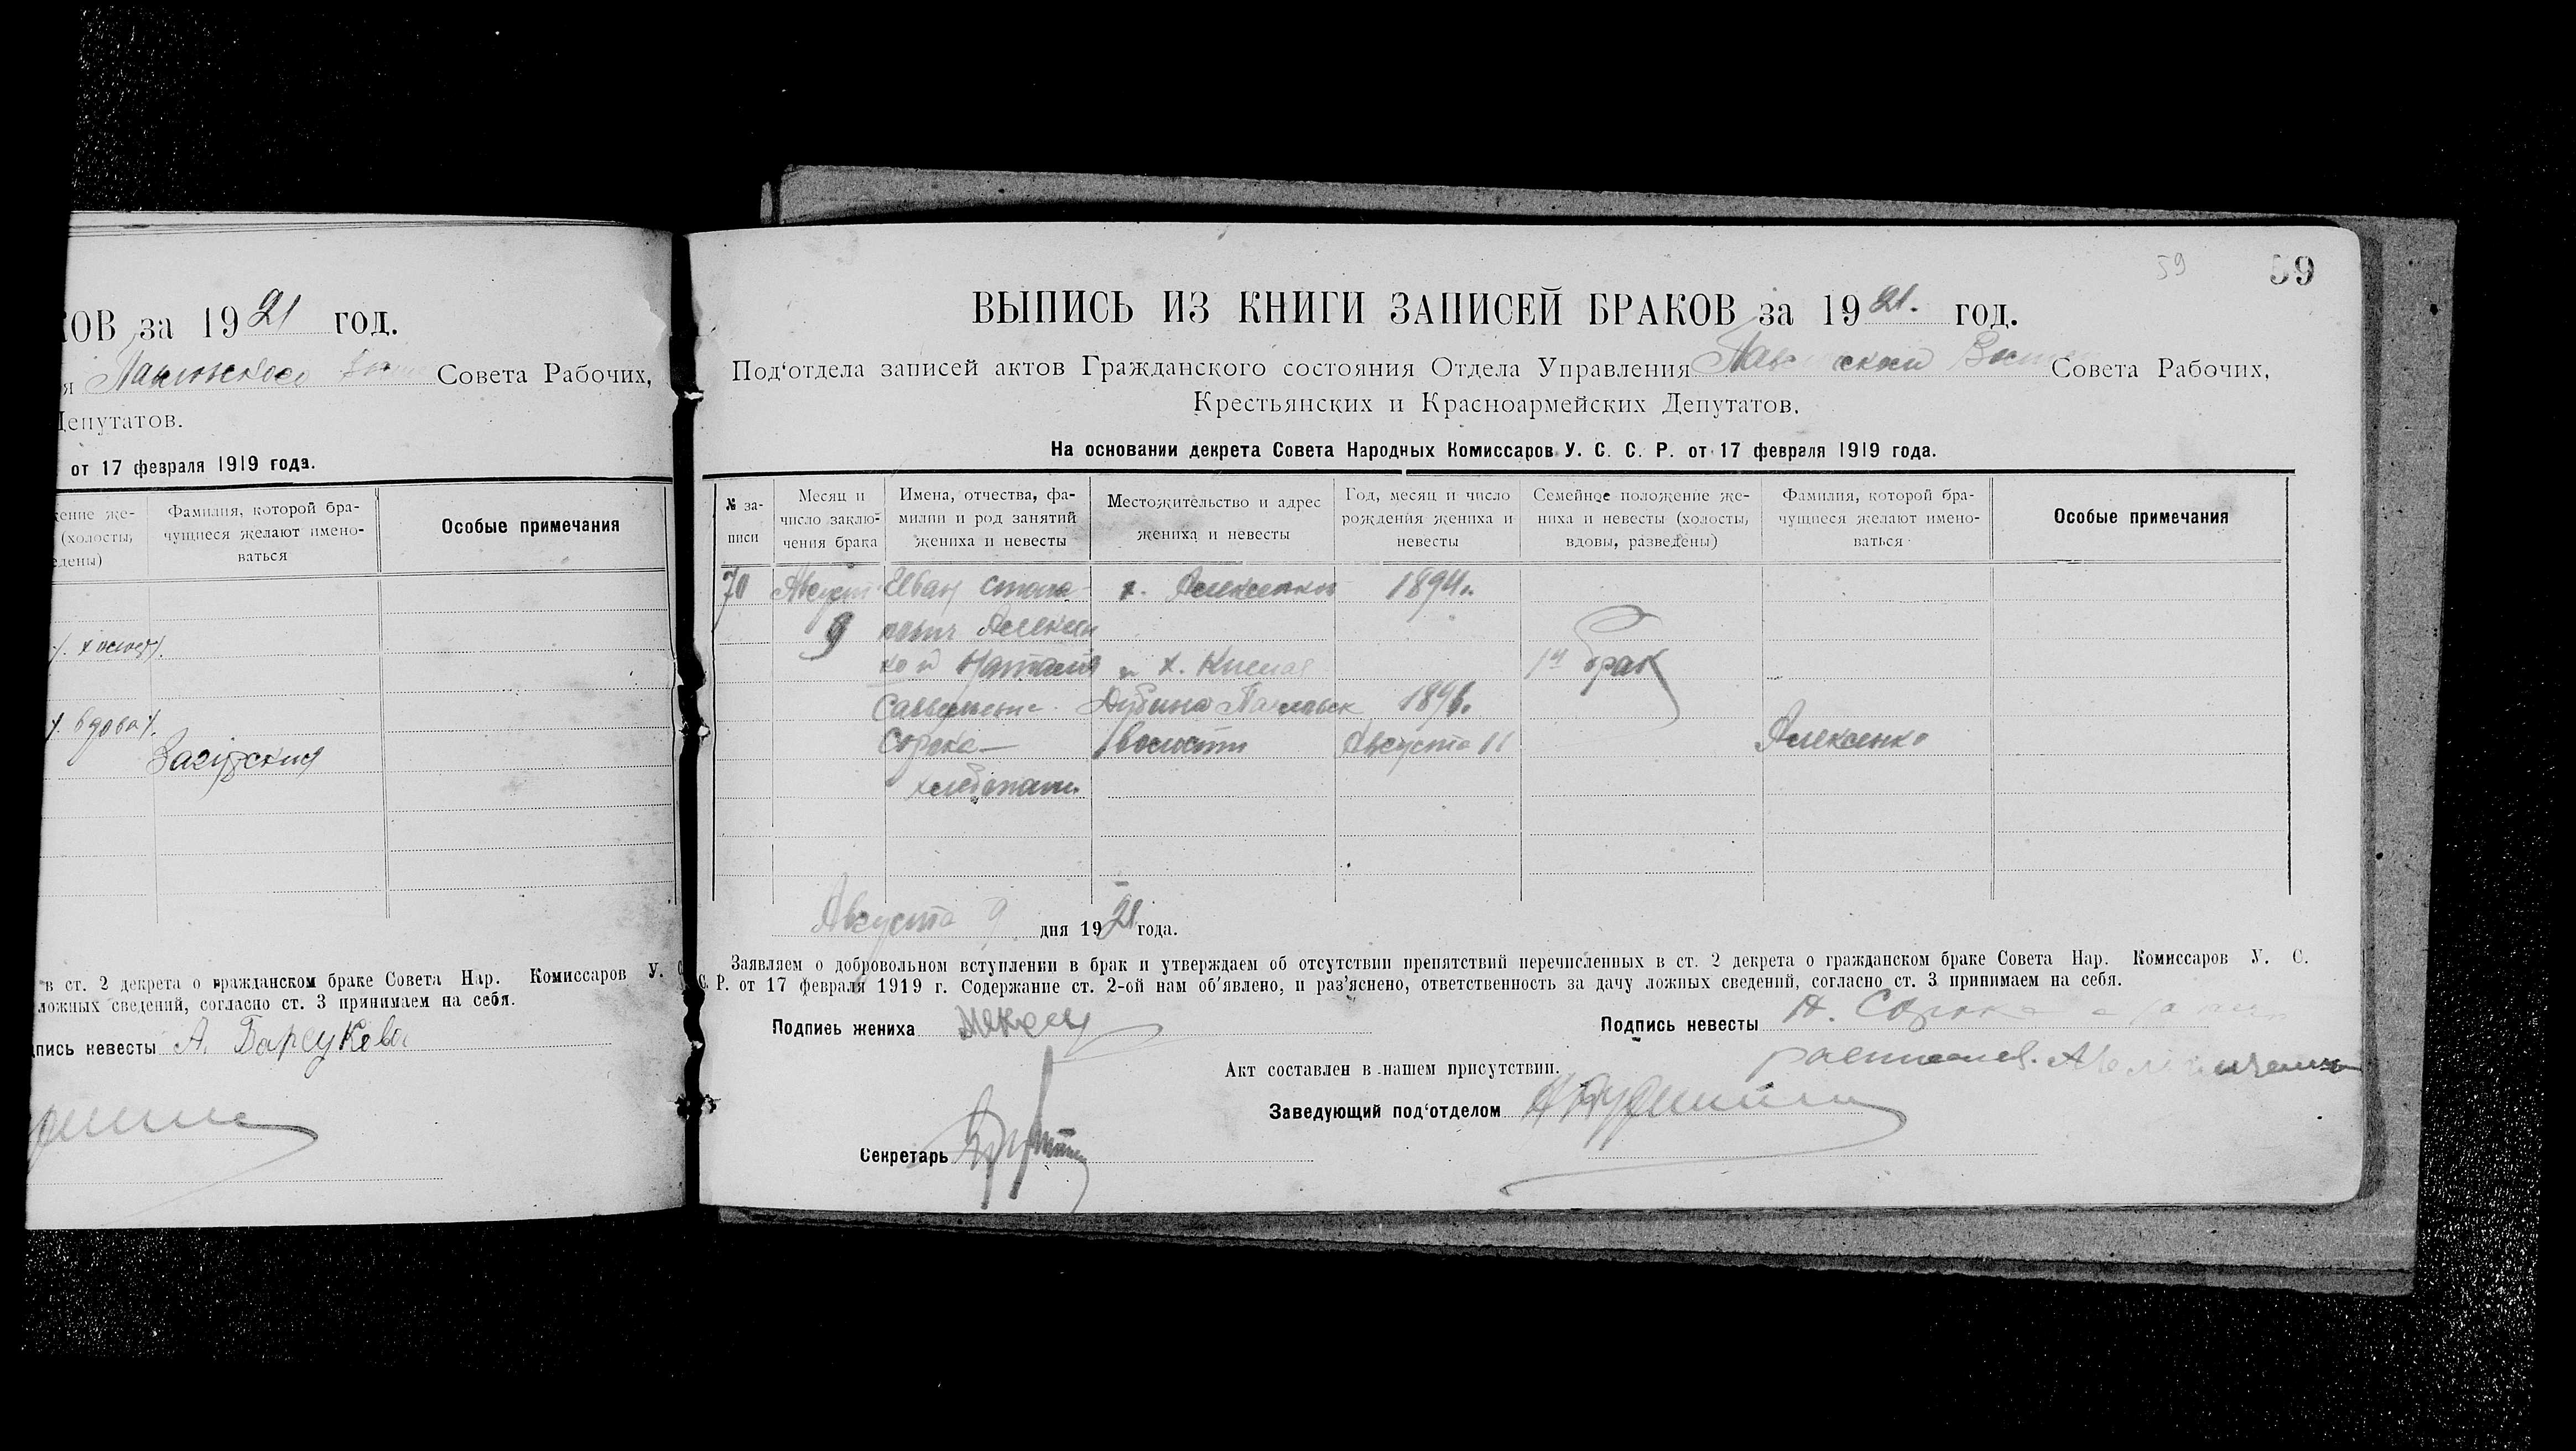 КОВ за 1921 год.
я Павловского Совета Рабочих,
Депутатов.
от 17 февраля 1919 года.
ение же-
(холосты,
дены)
Фамилия, которой бра-
чущиеся желают имено-
ваться
Особые примечания
вдова
в ст. 2 декрета о гражданском браке Совета Нар. Комиссаров У. С.
ложных сведений, согласно ст. 3 принимаем на себя.
дпись невесты А. Барсукова
59
59
ВЫПИСЬ ИЗ КНИГИ ЗАПИСЕЙ БРАКОВ за 1921. год.
Под‘отдела записей актов Гражданского состояния Отдела Управления Совета Рабочих,
Крестьянских и Красноармейских Депутатов.
На основании декрета Совета Народных Комиссаров У. С. С. Р. от 17 февраля 1919 года.
№ за-
писи
Месяц и
число заклю-
чения брака
Имена, отчества, фа-
милии и род занятий
жениха и невесты
Местожительство и адрес
жениха и невесты
Год, месяц и число
рождения жениха и
невесты
Семейное положение же-
ниха и невесты (холосты,
вдовы, разведены)
Фамилия, которой бра-
чущиеся желают имено-
ваться
Особые примечания
70 Август х. 1894.
9 Алексен
ко и Наталия и х. 1й брак
Дубина 1896.
Сорока волости Августа Алексенко
хлебопаш.
Августа 9 дня 1921 года.
Заявляем о добровольном вступлении в брак и утверждаем об отсутствии препятствий перечисленных в ст. 2 декрета о гражданском браке Совета Нар. Комиссаров У. С.
С. Р. от 17 февраля 1919 г. Содержание ст. 2-ой нам об’явлено, и раз’яснено, ответственность за дачу ложных сведений, согласно ст. 3 принимаем на себя.
Подпись жениха
Подпись невесты Н. Сорока
Акт составлен в нашем присутствии.
Заведующий под‘отделом
Секретарь